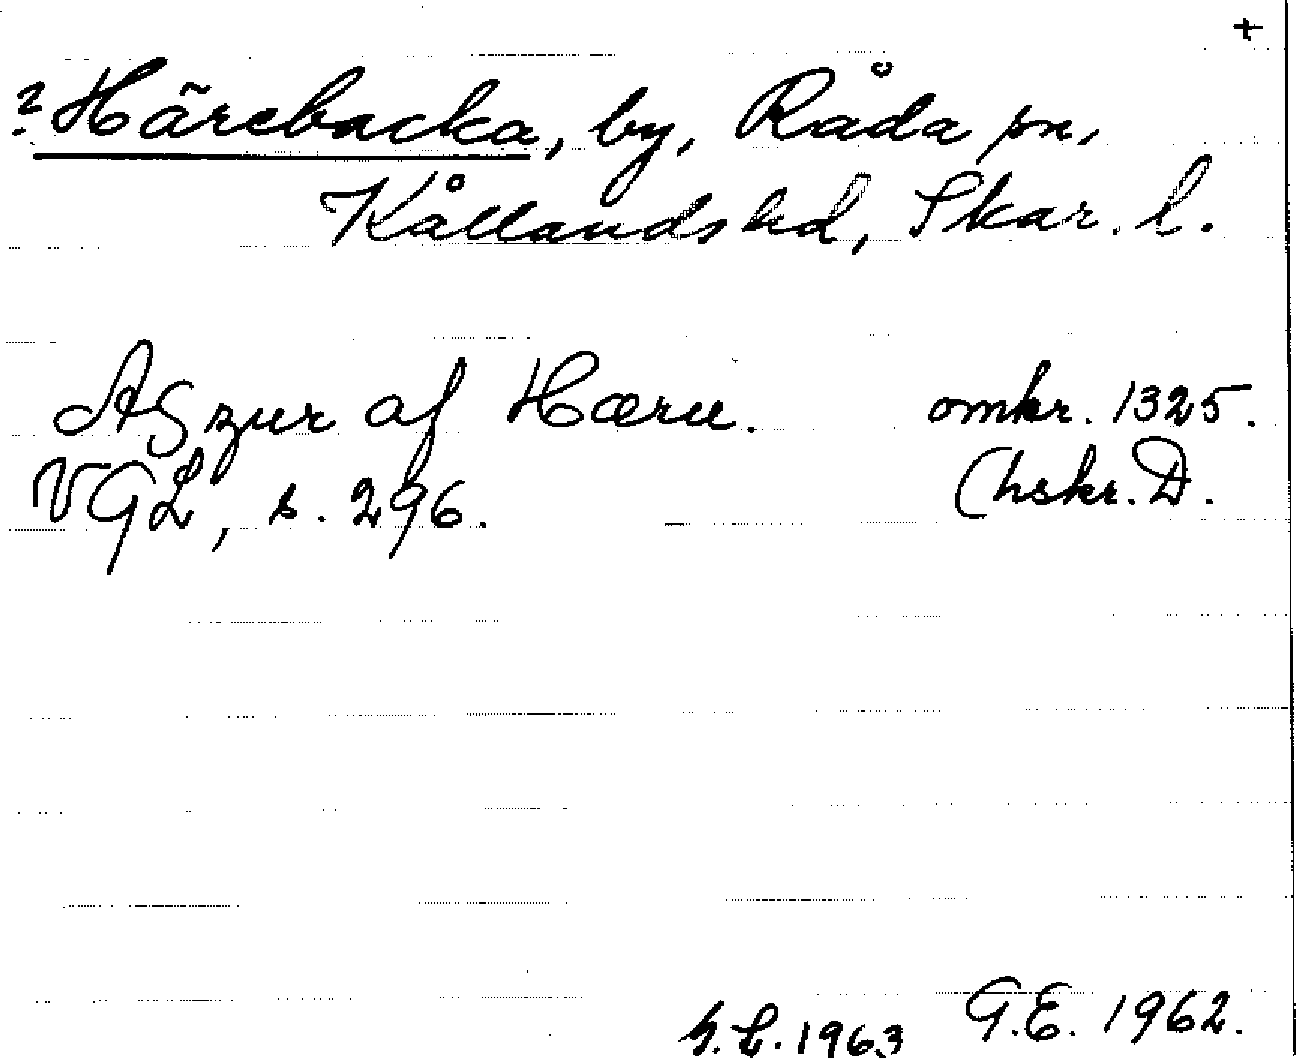 +
? Härebacka, by, Råda sn,
Kållands hd, Skar. l.
Azur af Hæru. omkr. 1325.
VGL, s. 296. (hskr. D.
G.E. 1962.